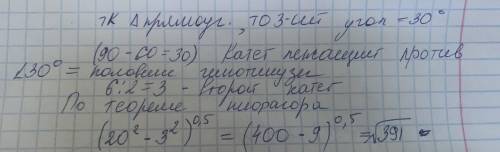 тк Δ прямоуг., то 3-ий угол - 30°
(90 - 60 = 30) Катет лежащий против
∠30° = половине гипотинузы
6:2 = 3 - второй катет
По теореме пифагора
(20² - 3²)^0,5 = (400 - 9)^0,5 = √391